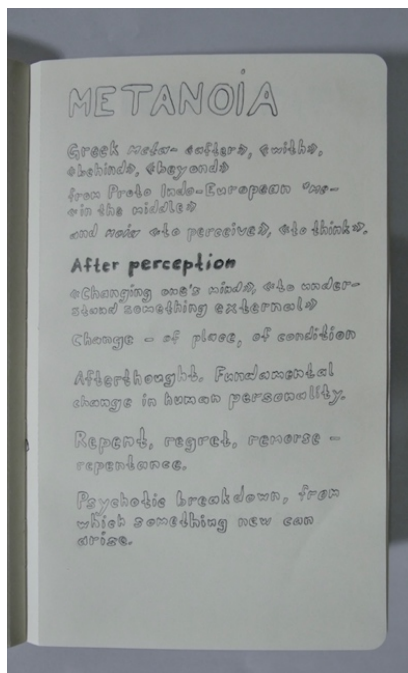 METANOIA
Greek meta- «after», «with»,
«behind», «beyond»
from Proto Indo-European *me-
«in the middle»
and noiō «to perceive», «to think».
After perception
«Changing one's mind», «to under-
stand something external»
Change – of place, of condition
Afterthought. Fundamental
change in human personality.
Repent, regret, remorse –
repentance.
Psychotic breakdown, from
which something new can
arise.